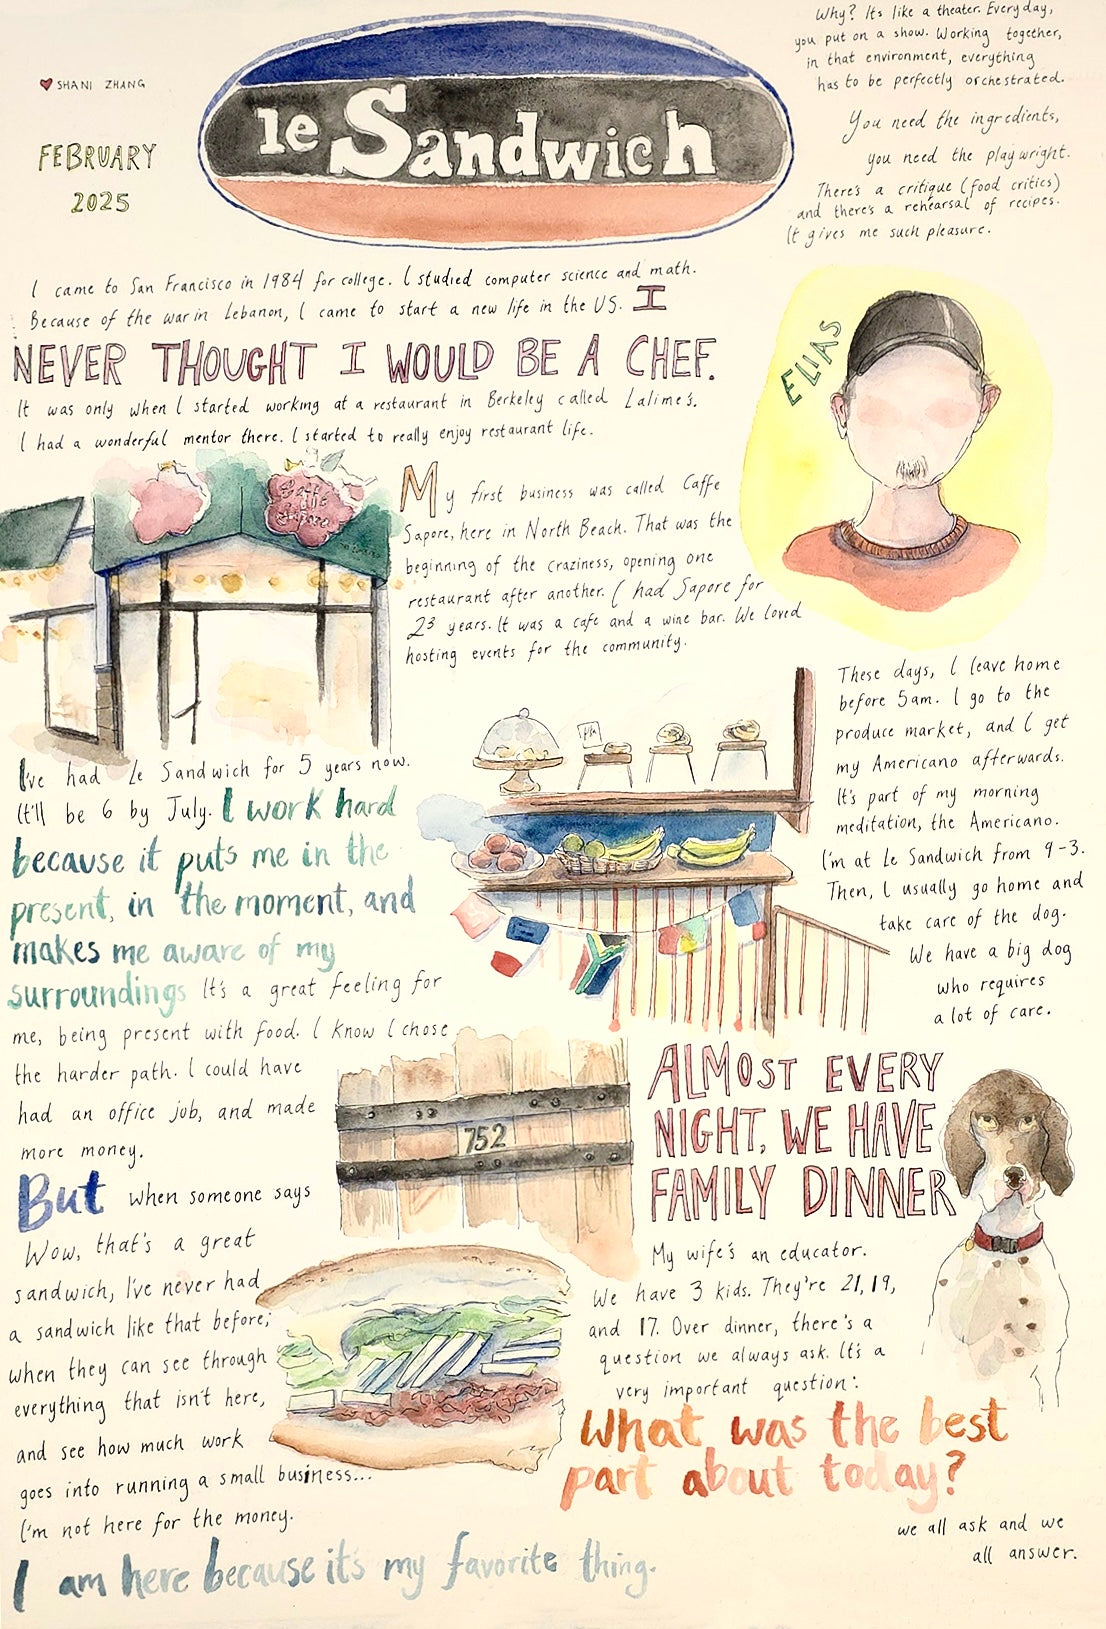 SHANI ZHANG
FEBRUARY
2025
le Sandwich
I came to San Francisco in 1984 for college. I studied computer science and math.
Because of the war in Lebanon, I came to start a new life in the US. I
NEVER THOUGHT I WOULD BE A CHEF.
It was only when I started working at a restaurant in Berkeley called Lalime's.
I had a wonderful mentor there. I started to really enjoy restaurant life.
Why? Its like a theater. Everyday,
you put on a show. Working together,
in that environment, everything
has to be perfectly orchestrated.
You need the ingredients,
you need the playwright.
There's a critique (food critics)
and there's a rehearsal of recipes.
It gives me such pleasure.
ELIAS
Caffe
Sapore
My first business was called Caffe
Sapore, here in North Beach. That was the
beginning of the craziness, opening one
restaurant after another. I had Sapore for
23 years. It was a cafe and a wine bar. We loved
hosting events for the community.
I've had Le Sandwich for 5 years now.
It'll be 6 by July. I work hard
because it puts me in the
present, in the moment, and
makes me aware of my
surroundings It's a great feeling for
me, being present with food. I know I chose
the harder path. I could have
had an office job, and made
more money.
But when someone says
Wow, that's a great
sandwich, I've never had
a sandwich like that before;
when they can see through
everything that isn't here,
and see how much work
goes into running a small business...
I'm not here for the money.
I am here because it's my favorite thing.
752
These days, I leave home
before 5am. I go to the
produce market, and I get
my Americano afterwards.
It's part of my morning
meditation, the Americano.
I'm at Le Sandwich from 9-3.
Then, I usually go home and
take care of the dog.
We have a big dog
who requires
a lot of care.
ALMOST EVERY
NIGHT, WE HAVE
FAMILY DINNER
My wife's an educator.
We have 3 kids. They're 21, 19,
and 17. Over dinner, there's a
question we always ask. It's a
very important question:
What was the best
part about today?
we all ask and we
all answer.